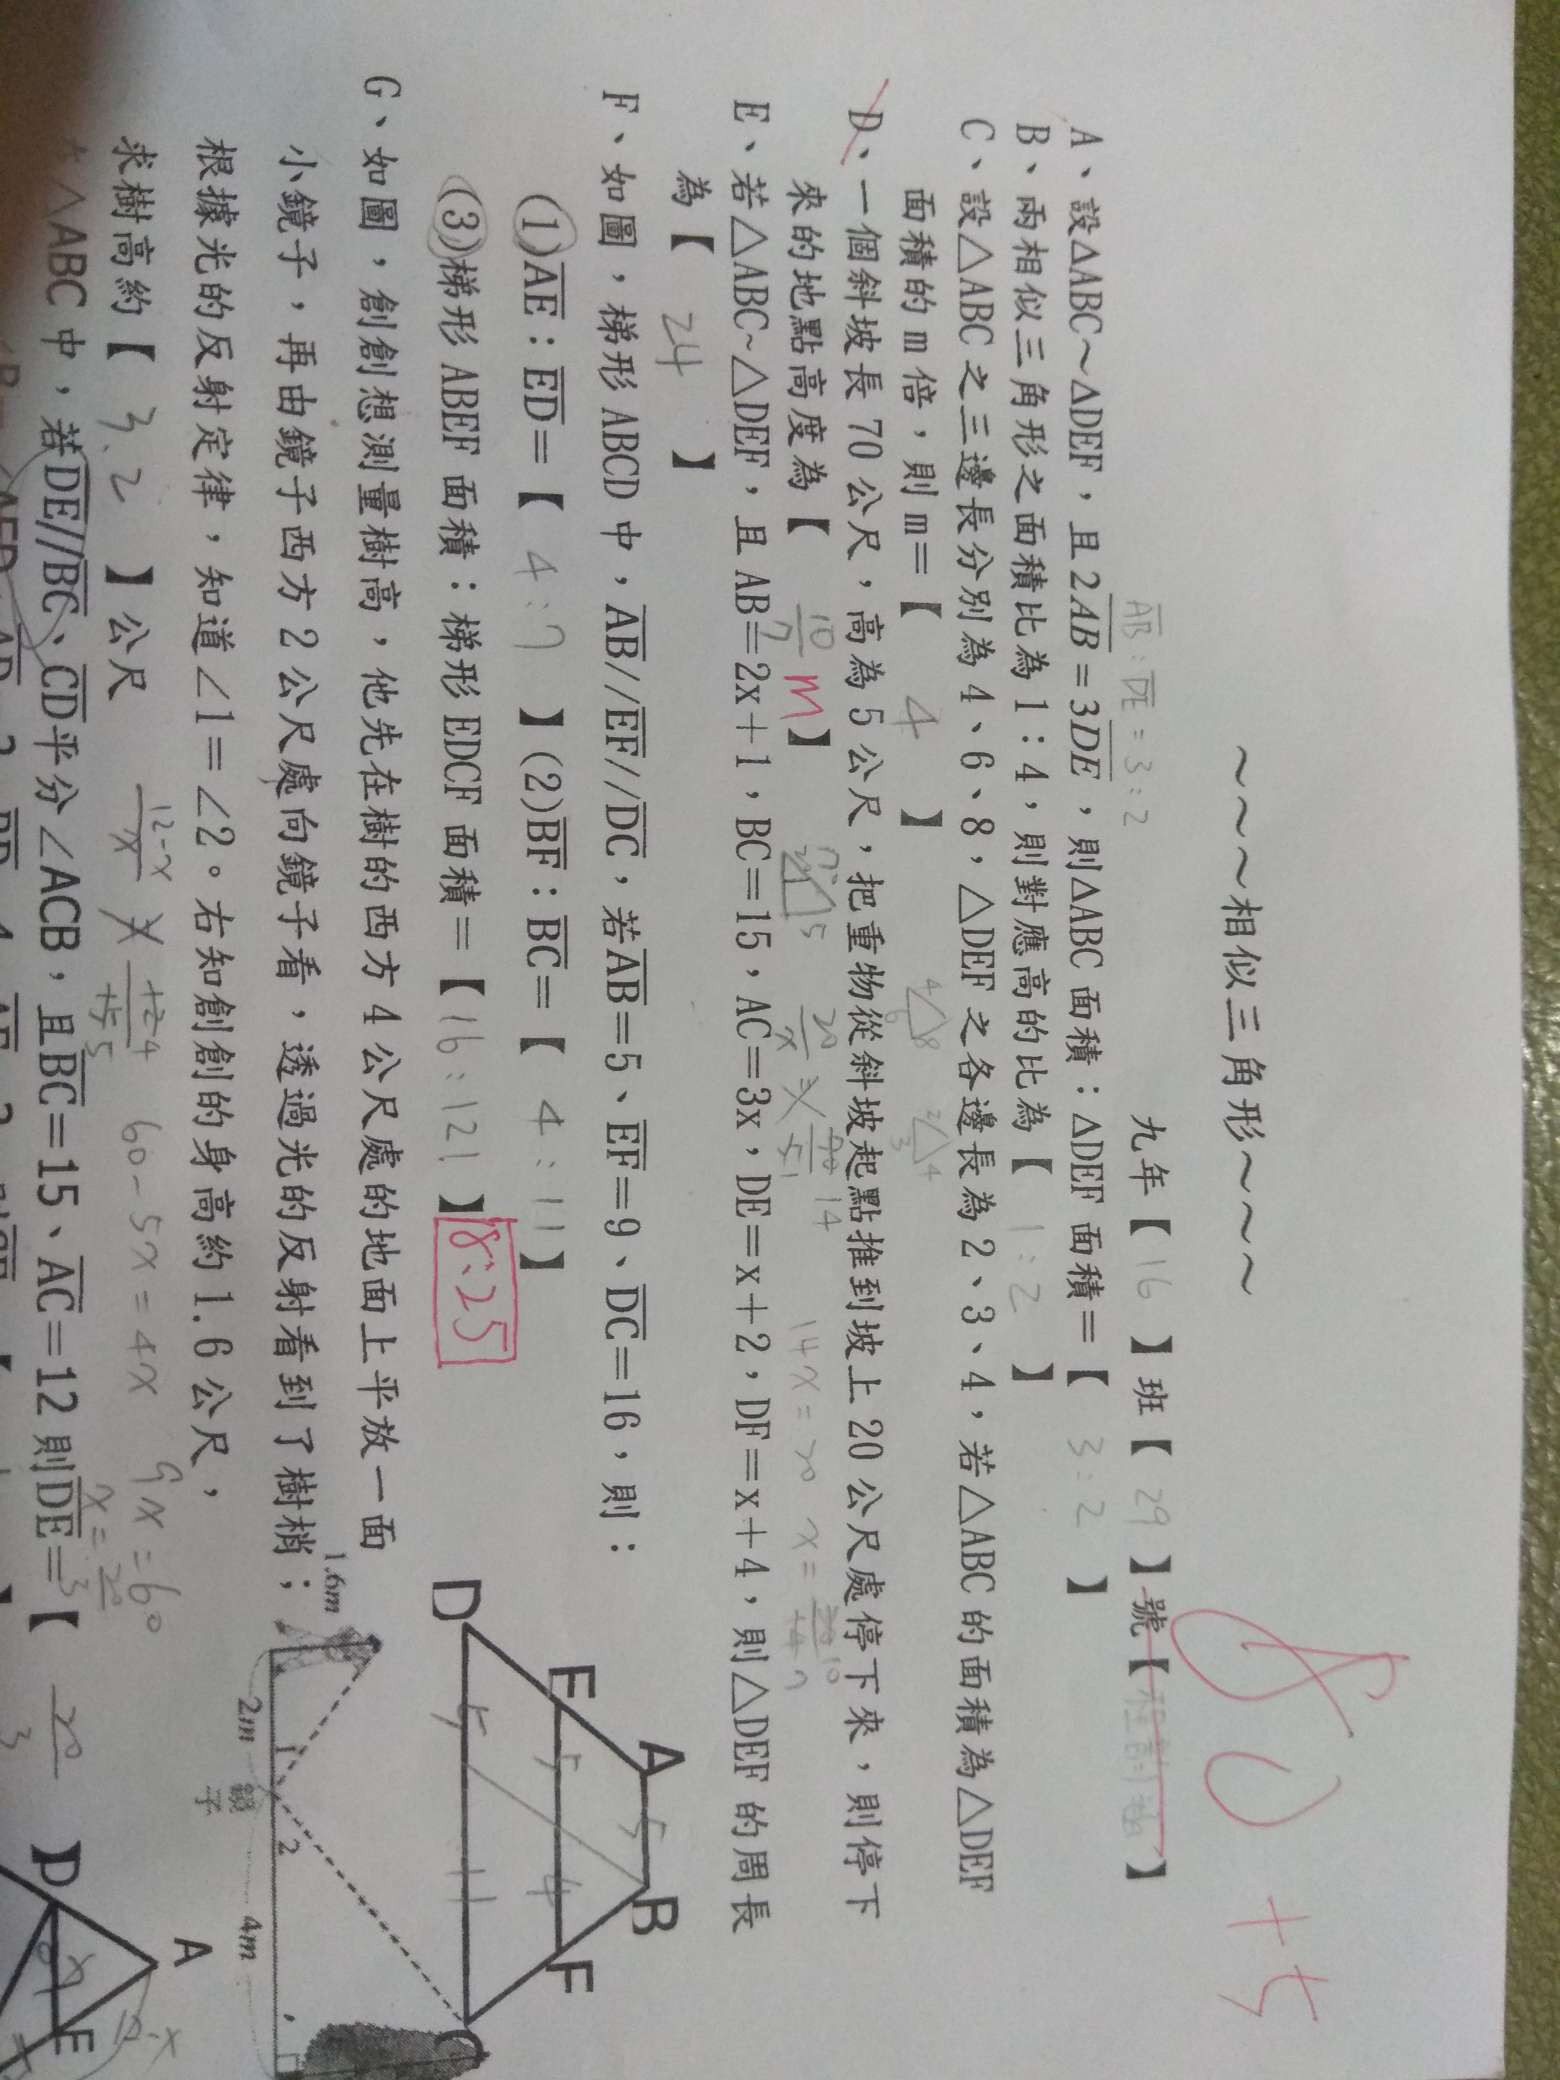 80+5
~~~~相似三角形~~~~
九年【16】班【29】號【】
AB:DE=3:2
A、設△ABC~△DEF,且2AB=3DE,則△ABC面積:△DEF面積=【3:2】
B、兩相似三角形之面積比為1:4,則對應高的比為【1:2】
C、設△ABC之三邊長分別為4、6、8,△DEF之各邊長為2、3、4,若△ABC的面積為△DEF
面積的m倍,則m=【4】
4 6 8 2 3 4
D、一個斜坡長70公尺,高為5公尺,把重物從斜坡起點推到坡上20公尺處停下來,則停下
來的地點高度為【10/7 m】
14x=20
E、若△ABC~△DEF,且AB=2x+1,BC=15,AC=3x,DE=x+2,DF=x+4,則△DEF的周長
為【24】
F、如圖,梯形ABCD中,AB//EF//DC,若AB=5、EF=9、DC=16,則:
(1)AE:ED=【4:7】(2)BF:BC=【4:11】
(3)梯形ABEF面積:梯形EDCF面積=【16:121】8:25
A B E F D C
5 5 4 5 11
G、如圖,創創想測量樹高,他先在樹的西方4公尺處的地面上平放一面
小鏡子,再由鏡子西方2公尺處向鏡子看,透過光的反射看到了樹梢;
根據光的反射定律,知道∠1=∠2。右知創創的身高約1.6公尺,
求樹高約【3.2】公尺
1.6m 2m 鏡子 4m 1 2
12-x
60-5x=4x 9x=60
△ABC中,若DE//BC、CD平分∠ACB,且BC=15、AC=12則DE=【20/3】
A D E x 12-x